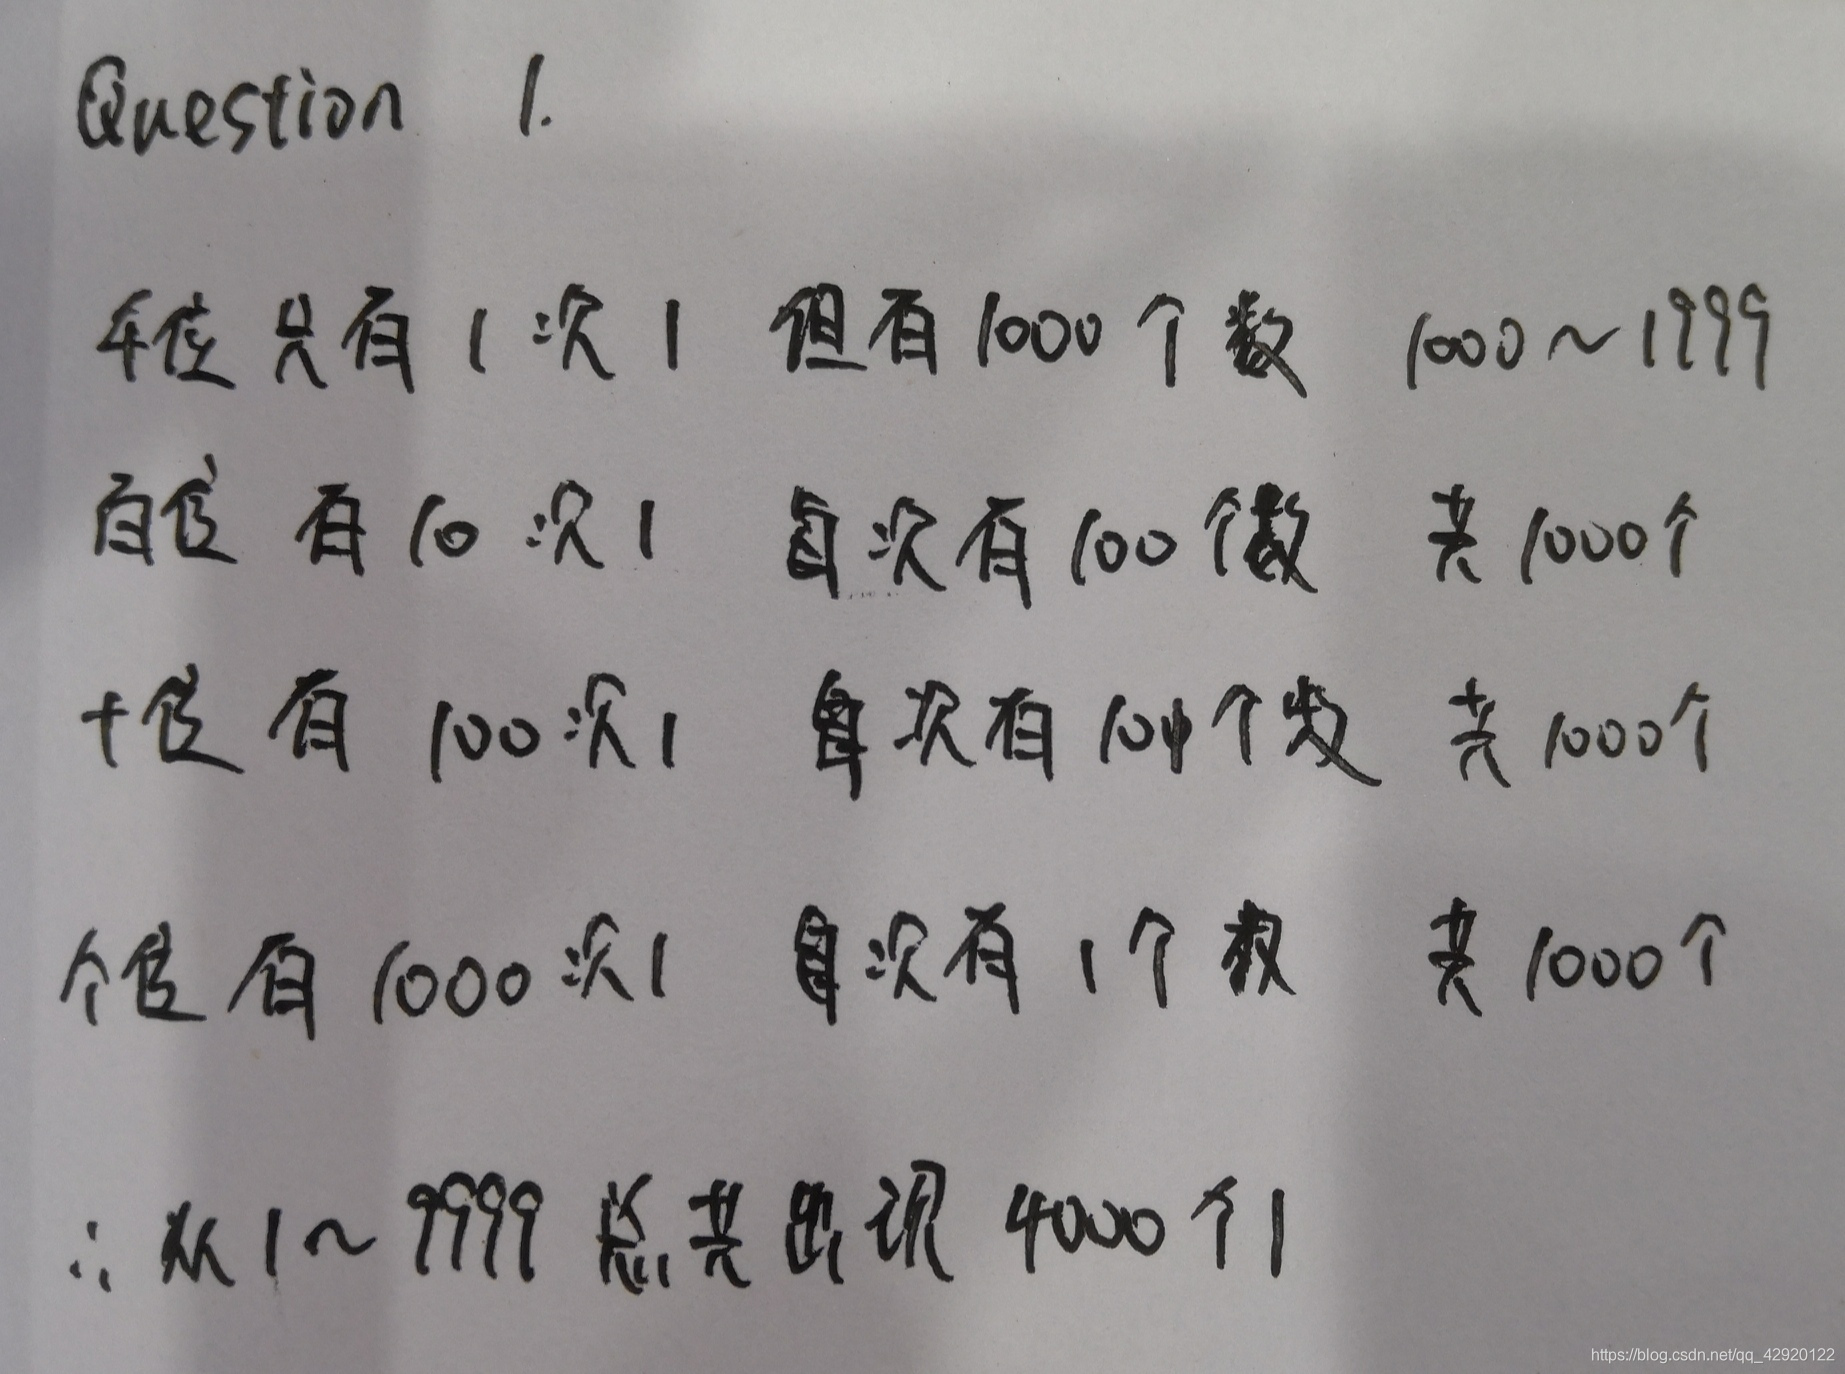 Question 1.
千位只有1次1 但有1000个数 1000~1999
百位 有10次1 每次有100个数 共1000个
十位有 100次1 每次有10个数 共1000个
个位有1000次1 每次有1个数 共1000个
∴从1~9999总共出现4000个1
https://blog.csdn.net/qq_42920122